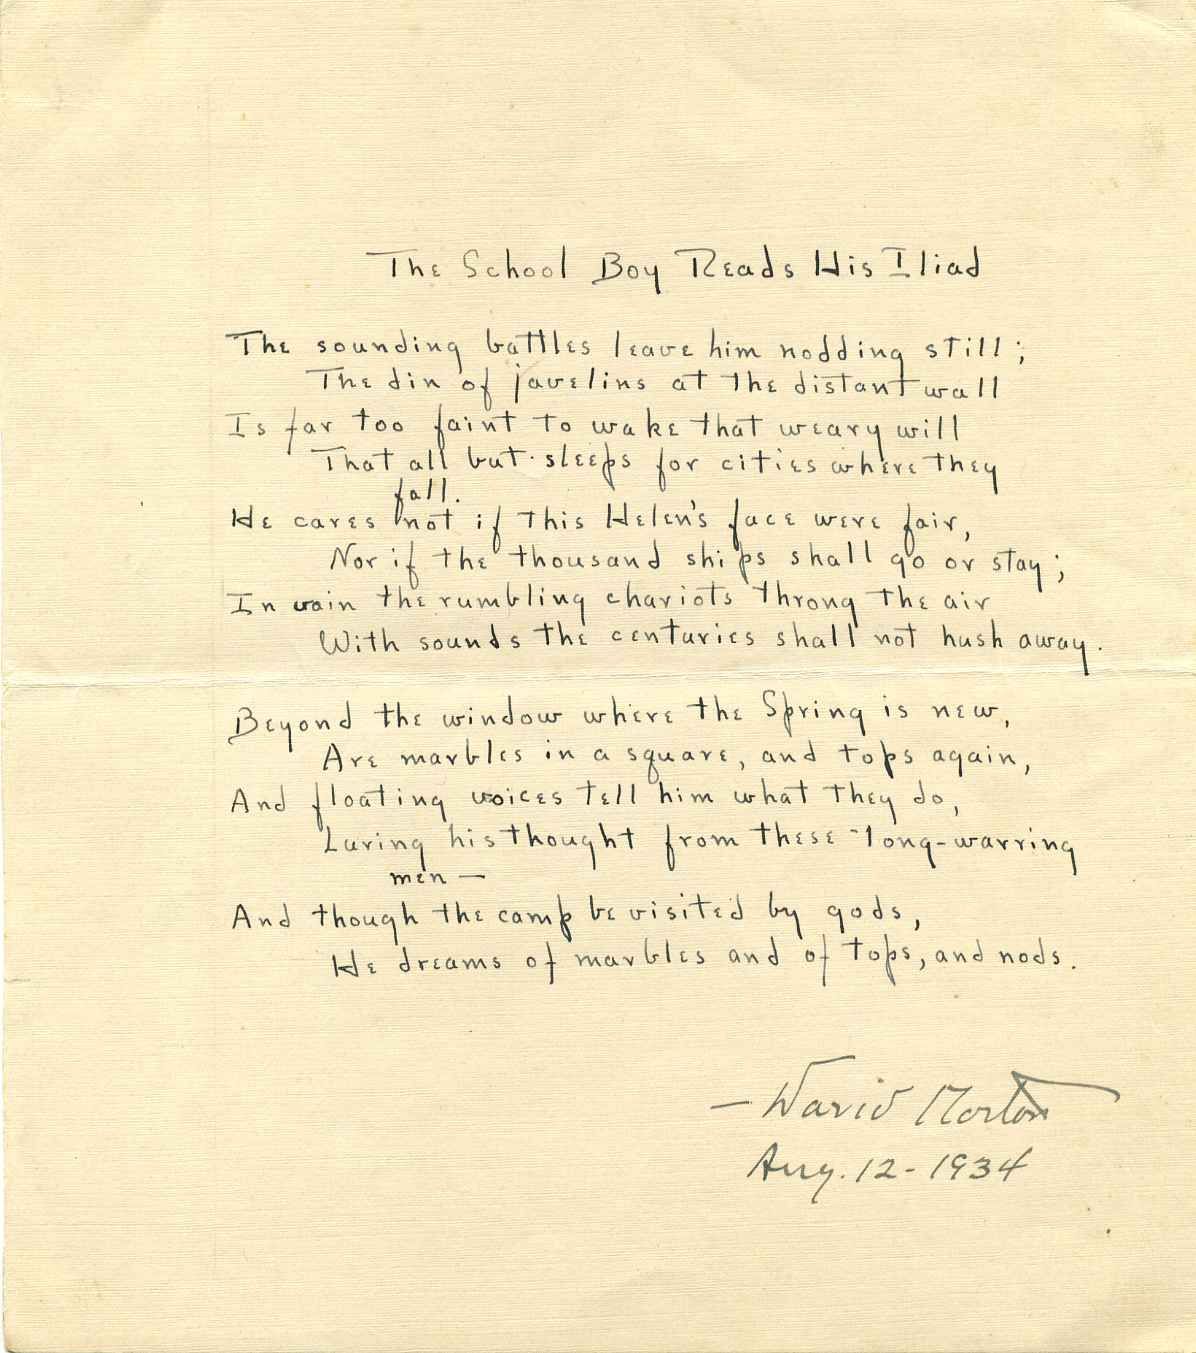 The School Boy Reads His Iliad
The sounding battles leave him nodding still;
The din of javelins at the distant wall
Is far too faint to wake that weary will
That all but sleeps for cities where they
fall.
He cares not if this Helen's face were fair,
Nor if the thousand ships shall go or stay;
In vain the rumbling chariots throng the air
With sounds the centuries shall not hush away.
Beyond the window where the Spring is new,
Are marbles in a square, and tops again,
And floating voices tell him what they do,
Luring his thought from these long-warring
men —
And though the camp be visited by gods,
He dreams of marbles and of tops, and nods.
— David Morton
Aug. 12 - 1934